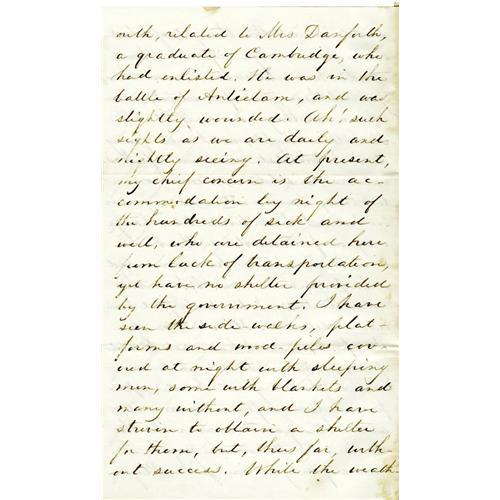 outh, related to Mrs Danforth,
a graduate of Cambridge, who
had enlisted. He was in the
battle of Antietam, and was
slightly wounded. Ah! such
sights as we are daily and
nightly seeing. At present,
my chief concern is the ac-
commodation by night of
the hundreds of sick and
well, who are detained here
from lack of transportation,
yet have no shelter provided
by the government. I have
seen the side-walks, plat-
forms and wood-piles cov-
ered at night with sleeping
men, some with blankets and
many without, and I have
striven to obtain a shelter
for them, but, thus far, with-
out success. While the weath-